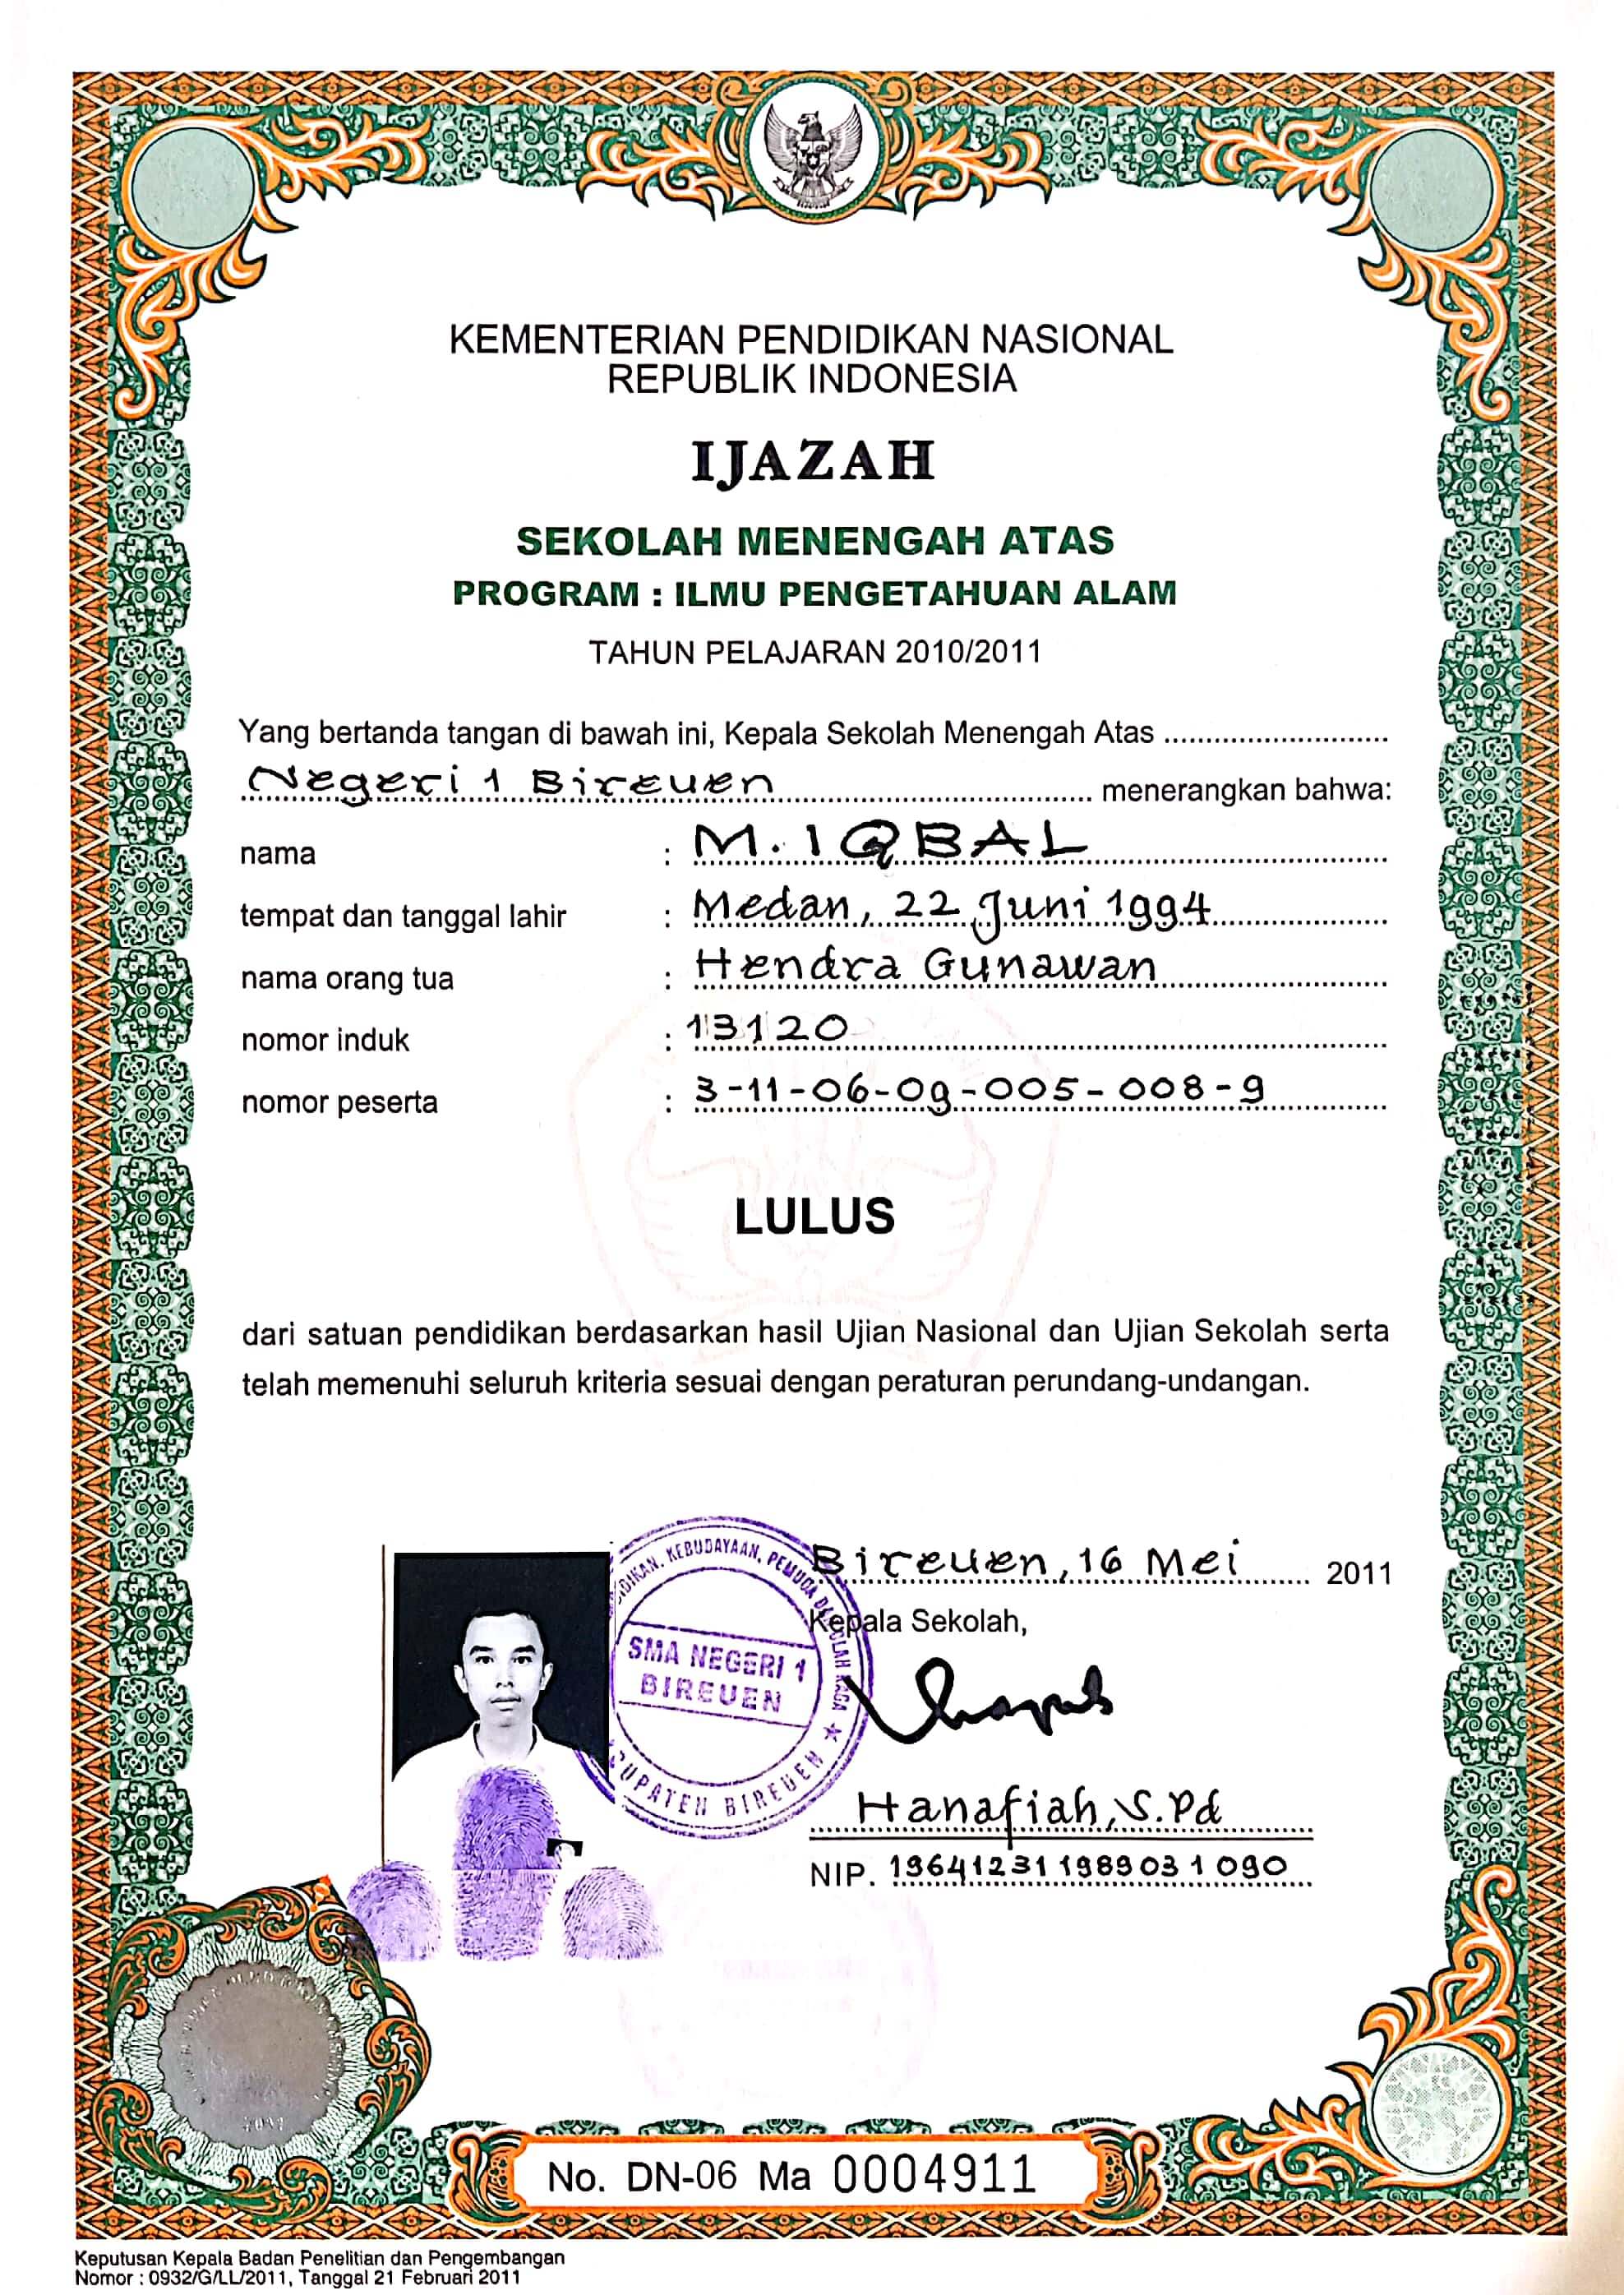 KEMENTERIAN PENDIDIKAN NASIONAL
REPUBLIK INDONESIA
IJAZAH
SEKOLAH MENENGAH ATAS
PROGRAM : ILMU PENGETAHUAN ALAM
TAHUN PELAJARAN 2010/2011
Yang bertanda tangan di bawah ini, Kepala Sekolah Menengah Atas
Negeri 1 Bireuen menerangkan bahwa:
nama : M. IQBAL
tempat dan tanggal lahir : Medan, 22 Juni 1994
nama orang tua : Hendra Gunawan
nomor induk : 13120
nomor peserta : 3-11-06-09-005-008-9
LULUS
dari satuan pendidikan berdasarkan hasil Ujian Nasional dan Ujian Sekolah serta
telah memenuhi seluruh kriteria sesuai dengan peraturan perundang-undangan.
Bireuen, 16 Mei 2011
Kepala Sekolah,
KEBUDAYAAN, PEMUDA DAN OLAH RAGA
SMA NEGERI 1
BIREUEN
BIREUEN
Hanafiah, S.Pd
NIP. 19641231 198903 1 090
No. DN-06 Ma 0004911
Keputusan Kepala Badan Penelitian dan Pengembangan
Nomor : 0932/G/LL/2011, Tanggal 21 Februari 2011